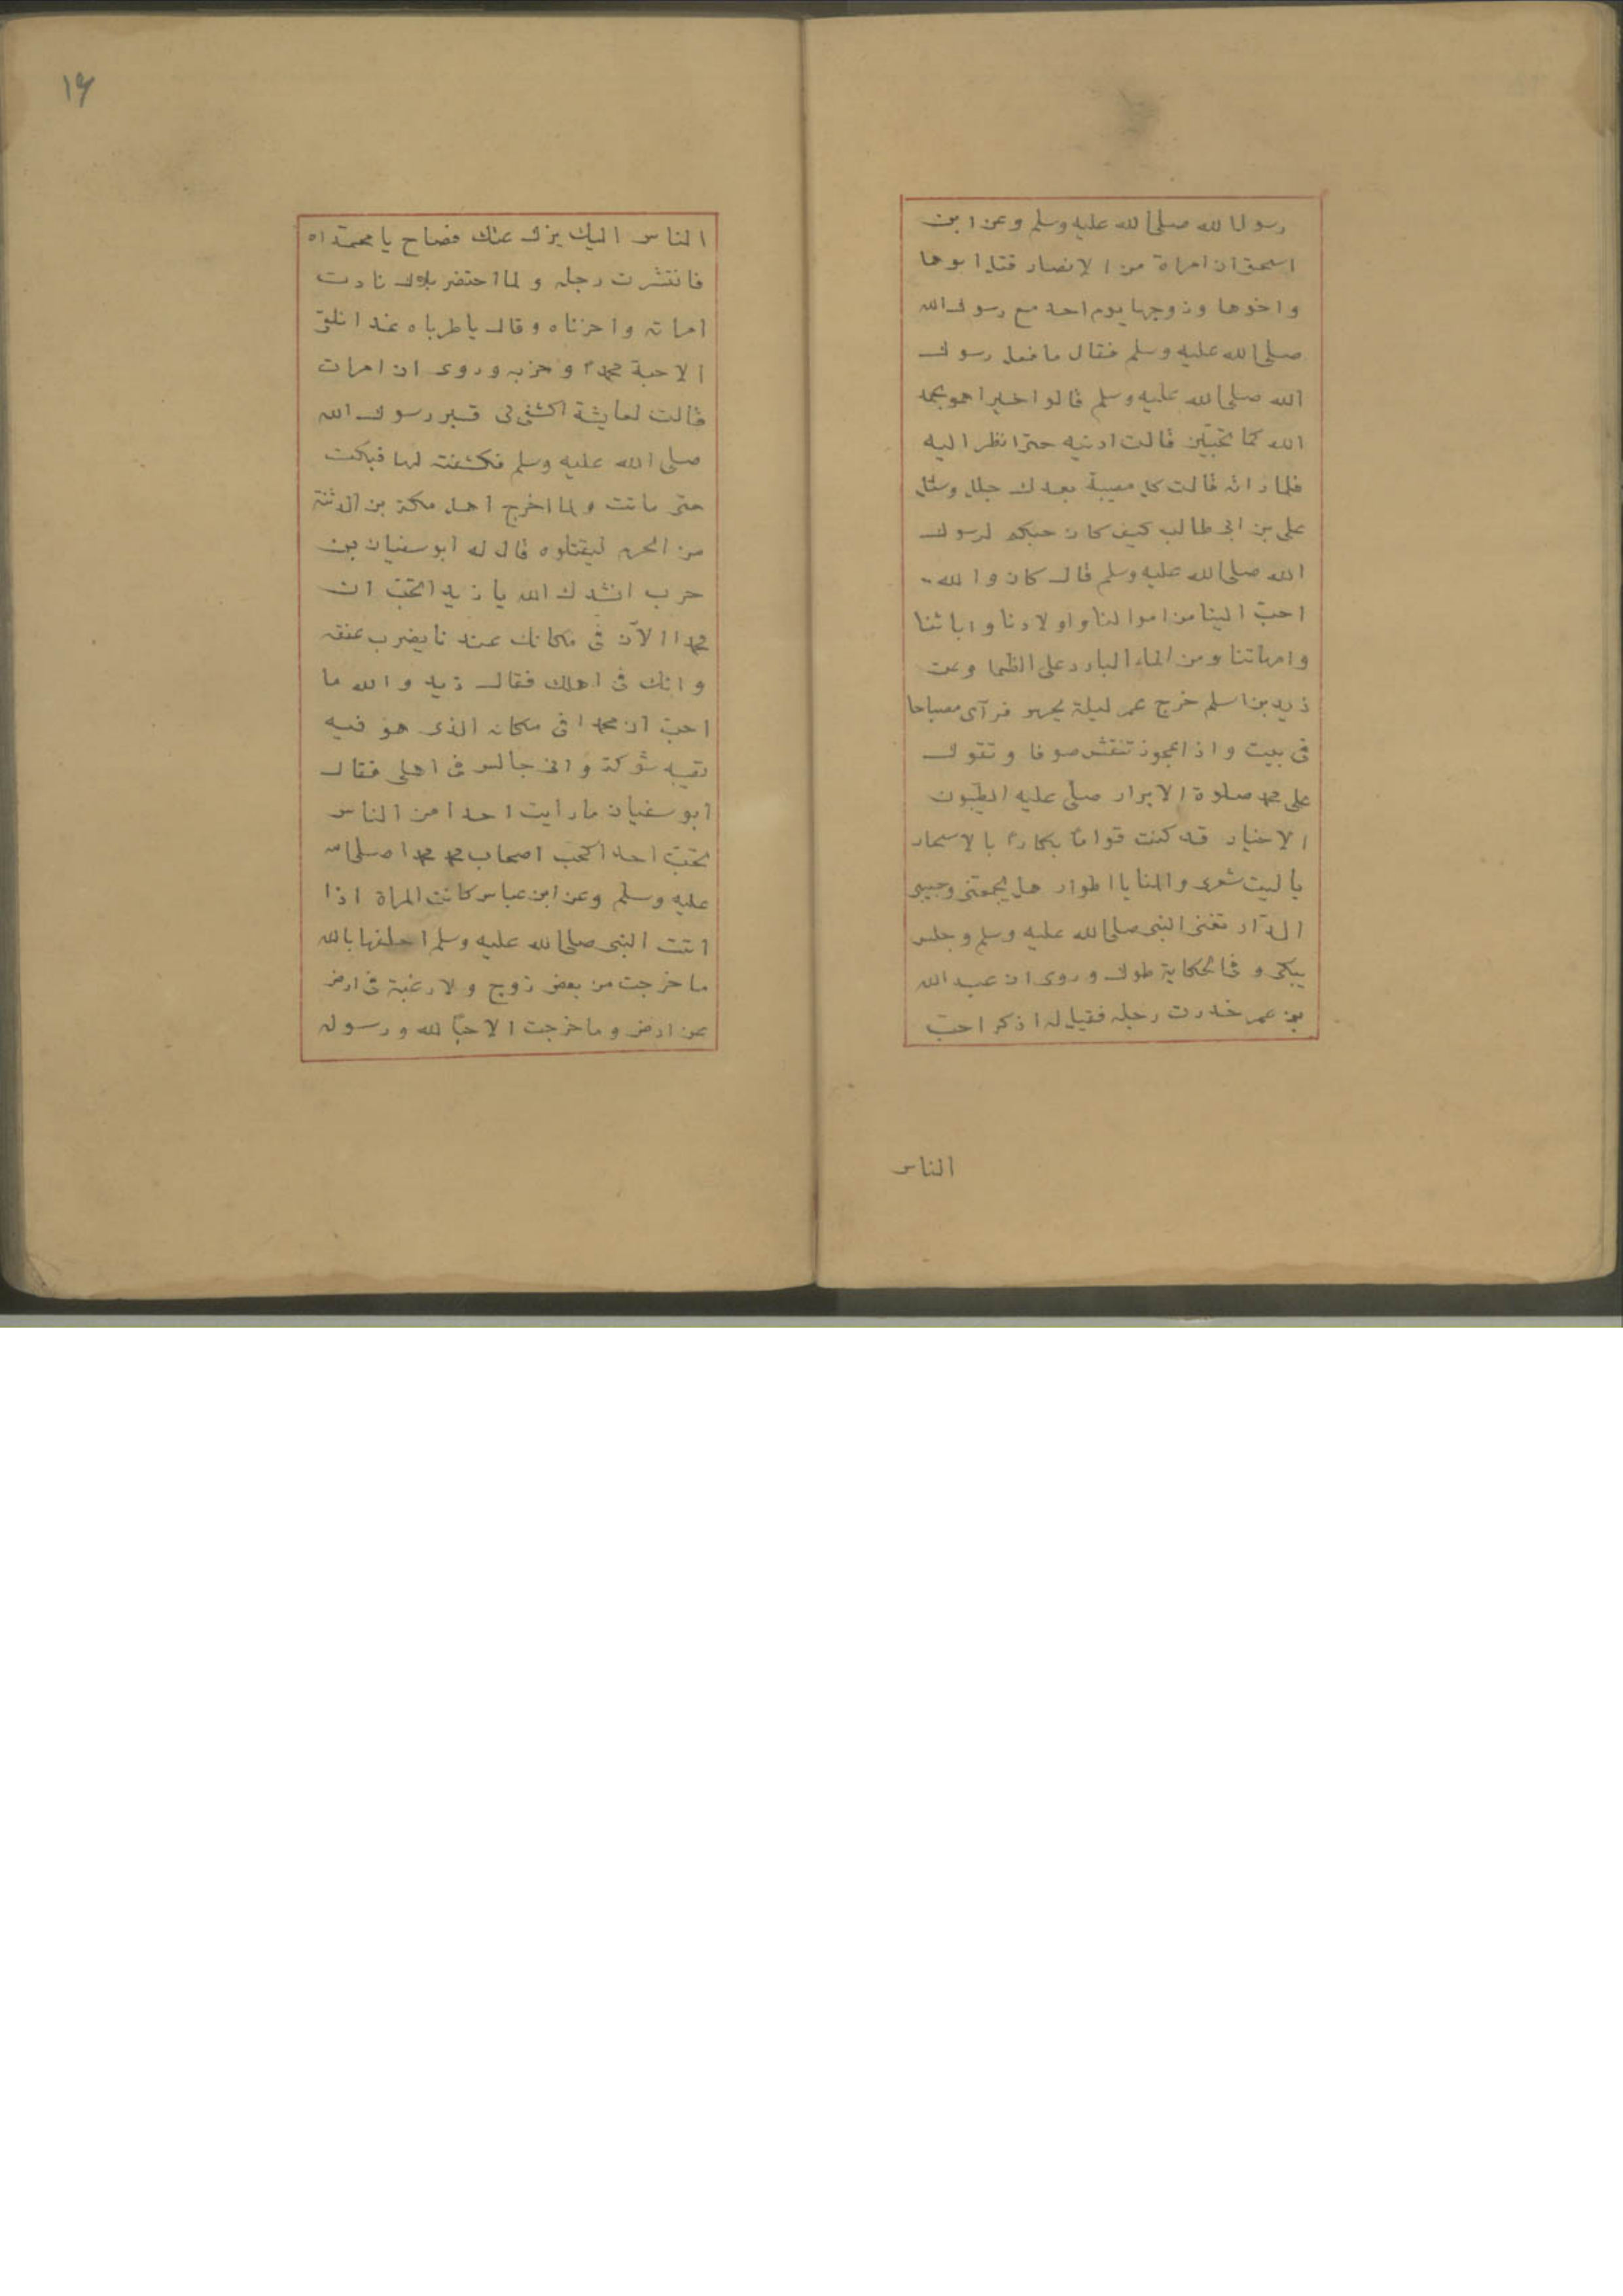 رسول الله صلى الله عليه وسلم وعن ابن
اسحق ان امراة من الانصار قتل ابوها
واخوها وزوجها يوم احد مع رسول الله
صلى الله عليه وسلم فقال ما فعل رسول
الله صلى الله عليه وسلم قالوا خيرا هو بحمد
الله كما تحبين قالت ارنيه حتى انظر اليه
فلما راته قالت كل مصيبة بعدك جلل وسئل
على بن ابى طالب كيف كان حبكم لرسول
الله صلى الله عليه وسلم قال كان والله
احب الينا من اموالنا واولادنا وابائنا
وامهاتنا ومن الماء البارد على الظما وعن
زيد بن اسلم خرج عمر ليلة يحرس فرآى مصباحا
فى بيت واذا عجوز تنفش صوفا وتقول
على محمد صلوة الابرار صلى عليه الطيبون
الاخيار قد كنت قواما بكارًا بالاسحار
يا ليت شعرى والمنايا اطوار هل يجمعنى وحبيبى
الدّار تعنى النبى صلى الله عليه وسلم وجلس
يبكى وفى الحكاية طول وروى ان عبد الله
بن عمر خدرت رجله فقيل له اذكر احب
الناس
١٦
الناس اليك يزل عنك فصاح يا محمّداه
فانتشرت رجله ولما احتضر بلال نادت
امراته واحزناه وقال ياطرباه غدا نلقى
الاحبة محمدًا وحزبه وروى ان امرات
قالت لعايشة اكشفى لى قبر رسول الله
صلى الله عليه وسلم فكشفته لها فبكت
حتى ماتت ولما اخرج اهل مكة بن الدثنة
من الحرم ليقتلوه قال له ابو سفيان بن
حرب انشدك الله يا زيد اتحبّ ان
محمدا الآن فى مكانك عندنا يضرب عنقه
وانك فى اهلك فقال زيد والله ما
احب ان محمدا فى مكانه الذى هو فيه
تصيبه شوكة وانى جالس فى اهلى فقال
ابو سفيان ما رايت احدا من الناس
يحبّ احدا كحب اصحاب محمد محمدا صلى الله
عليه وسلم وعن ابن عباس كانت المراة اذا
اتت النبى صلى الله عليه وسلم احلفها بالله
ما خرجت من بعض زوج ولا رغبة فى ارض
عن ارض وما خرجت الا حبًا لله ورسوله